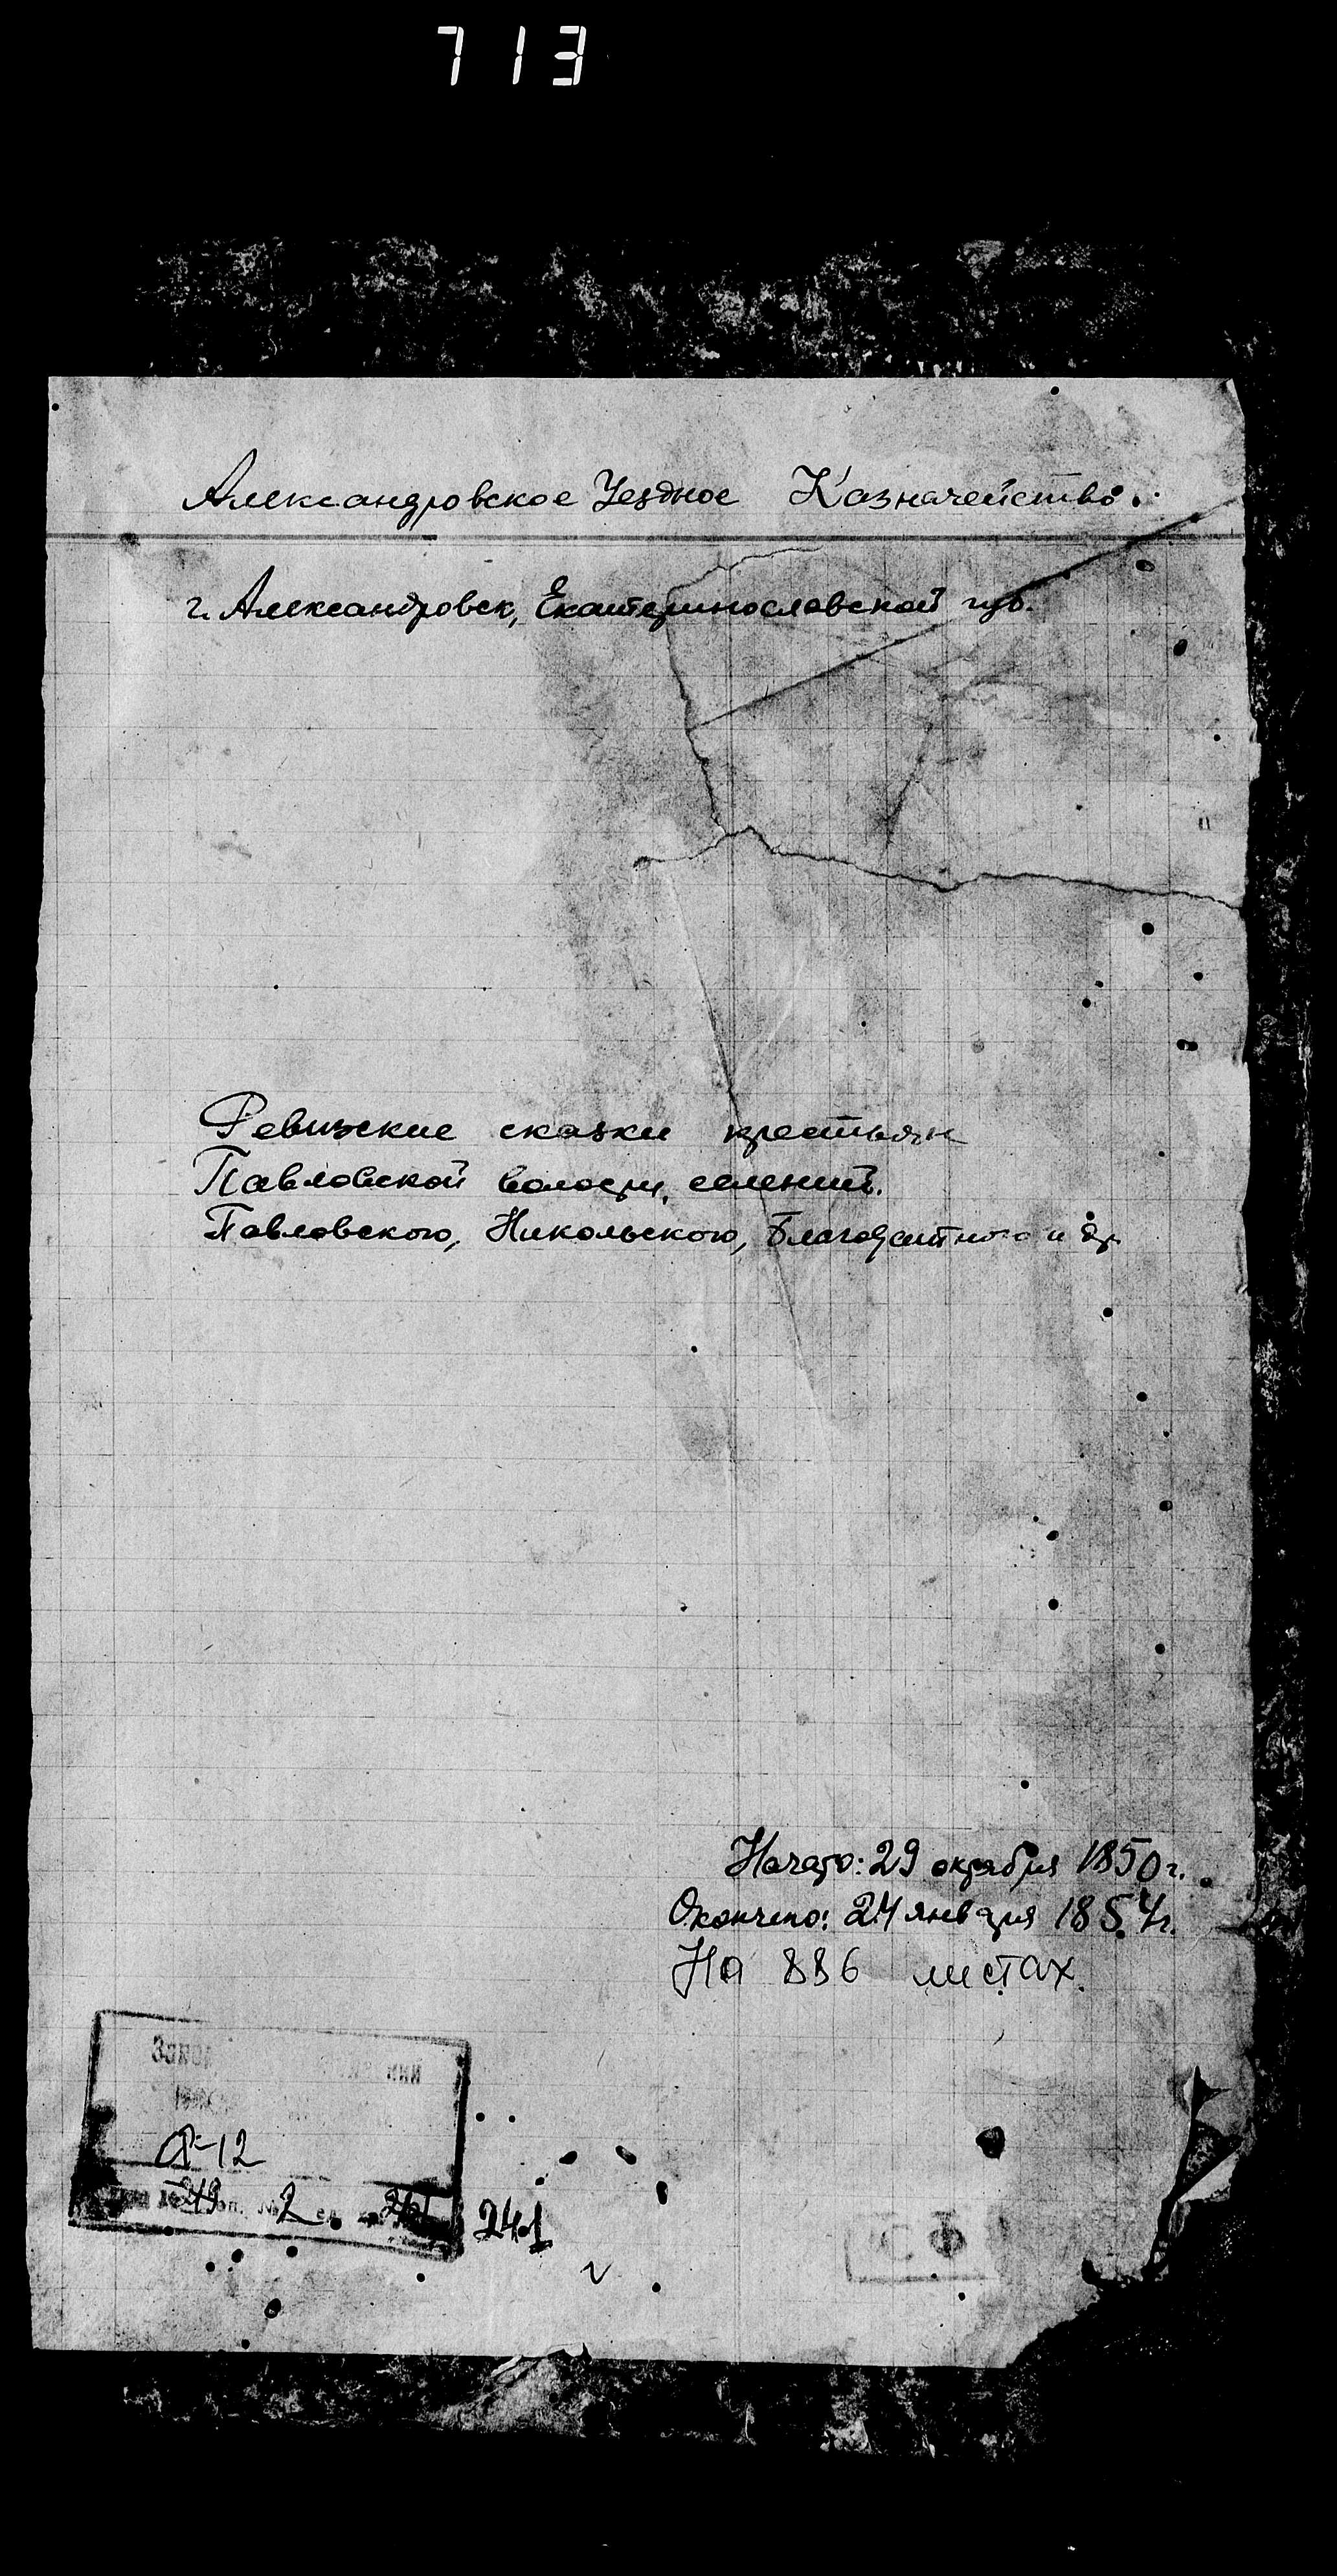 713
Александровское Уездное Казначейство.
г. Александровск, Екатеринославской губ.
Ревизские сказки крестьян
Павловской волости, селений.
Павловского, Никольского, Благодатного и др.
Начато: 29 октября 1850 г.
Окончено: 24 января 1854 г.
На 886 листах.
Ф-12
оп. № 2
241